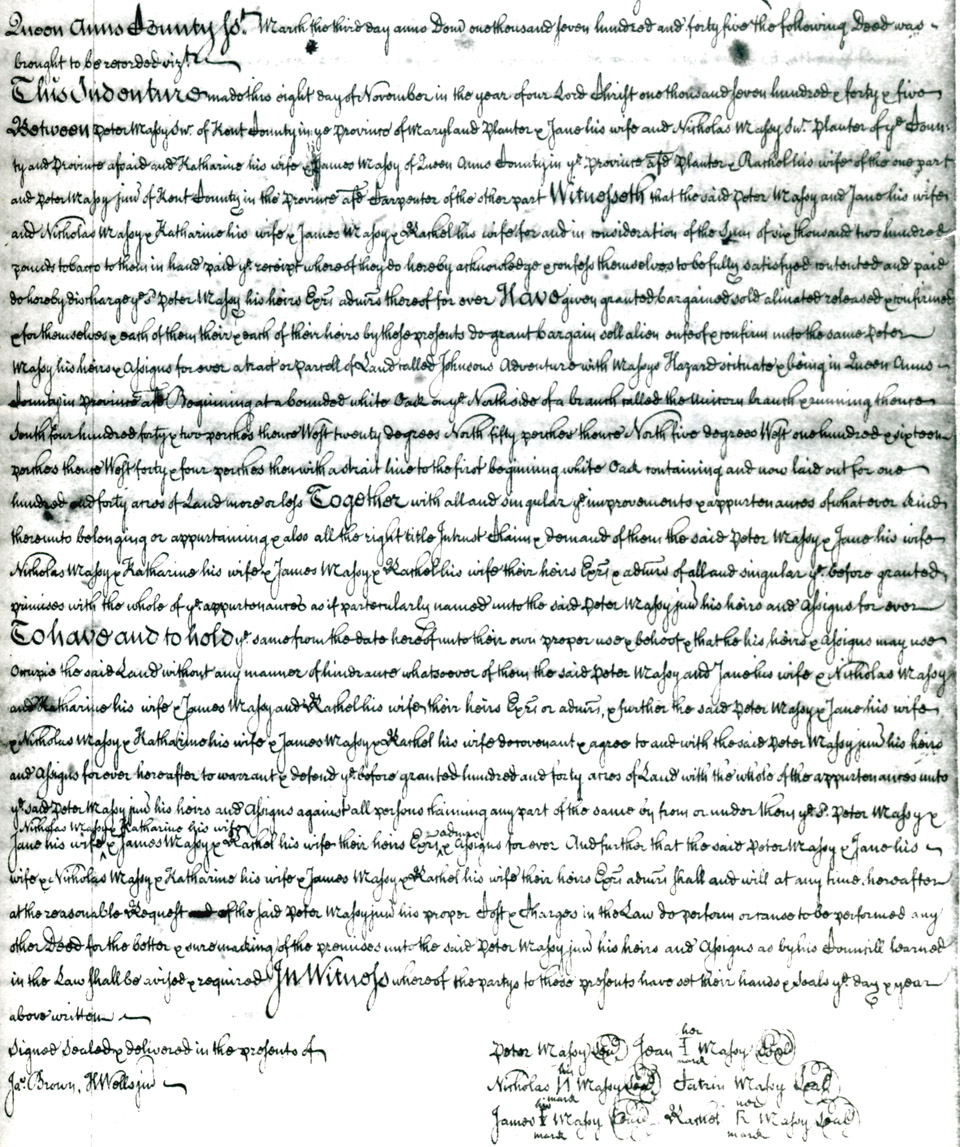 Queen Anns County Ss.t March the third day anno Dom one thousand seven hundred and forty five the following Deed was
brought to be recorded viz.t
This Indenture made this eight day of November in the year of our Lord Christ one thousand seven hundred & forty & five
Between Peter Massy Sen.r of Kent County in ye Province of Maryland Planter & Jane his wife and Nicholas Massy Sen.r Planter of ye Coun
ty and Province afsaid and Katharine his wife & James Massy of Queen Anns County in ye Province afd Planter & Rachel his wife of the one part
and Peter Massy junr of Kent County in the Province afd Carpenter of the other part Witnesseth that the said Peter Massy and Jane his wife
and Nicholas Massy & Katharine his wife & James Massy & Rachel his wife for and in consideration of the Sum of six thousand two hundred
pounds tobacco to them in hand paid ye receipt whereof they do hereby acknowledge & confess themselves to be fully satisfyed contented and paid
do hereby discharge ye sd Peter Massy his heirs Exrs admrs thereof for ever Have given granted bargained sold alinated released & confirmed
& for themselves & each of them their & each of their heirs by these presents do grant bargain sell alien enfeof & confirm unto the same Peter
Massy his heirs & Assigns for ever a tract or parcell of Land called Johnsons Adventure with Massys Hazard scituate & being in Queen Anns
County in Province afd Beginning at a bounded white Oak on ye North side of a branch called the Unicorn branch & running thence
South four hundred forty & two perches thence West twenty degrees North fifty perches thence North five degrees West one hundred & sixteen
perches thence West forty & four perches then with a strait line to the first begining white Oak containing and now laid out for one
hundred and forty acres of Land more or less Together with all and singular ye improvements & appurtenances of what ever kind
thereunto belonging or appurtaining & also all the right title Intrust Claim & demand of them the said Peter Massy & Jane his wife
Nicholas Massy & Katharine his wife & James Massy & Rachel his wife their heirs Exrs & admrs of all and singular ye before granted
primises with the whole of ye appurtenances as if particularly named unto the said Peter Massy junr his heirs and Assigns for ever
To have and to hold ye same from the date hereof unto their own proper use & behoof & that he his heirs & Assigns may use
Occupie the said Land without any manner of hindrance whatsoever of them the said Peter Massy and Jane his wife & Nicholas Massy
and Katharine his wife & James Massy and Rachel his wife their heirs Exrs or admrs, & further the said Peter Massy & Jane his wife
& Nicholas Massy & Katharine his wife & James Massy & Rachel his wife do covenant & agree to and with the said Peter Massy junr his heirs
and Assigns forever hereafter to warrant & defend ye before granted hundred and forty acres of Land with the whole of the appurtenances unto
ye said Peter Massy junr his heirs and Assigns against all persons claiming any part of the same by from or under them ye sd Peter Massy &
Nicholas Massy & Katharine his wife admrs
Jane his wife & James Massy & Rachel his wife their heirs Exrs & Assigns for ever And further that the said Peter Massy & Jane his
wife & Nicholas Massy & Katharine his wife & James Massy & Rachel his wife their heirs Exrs admrs shall and will at any time hereafter
at the reasonable Request of the said Peter Massy junr his proper Cost & Charges in the Law do perform or cause to be performed any
other Deed for the better & sure making of the premises unto the said Peter Massy junr his heirs and Assigns as by his Councill learned
in the Law shall be avised & required In Witness whereof the partys to these presents have set their hands & seals ye day & year
above written
Signed Sealed & delivered in the presents of
Jas Brown, H Wells junr
Peter Massy Seal Jean her I mark Massy Seal
Nicholas his N mark Massy Seal Catrin Massy Seal
James his I mark Massy Seal Rachel her R mark Massy Seal